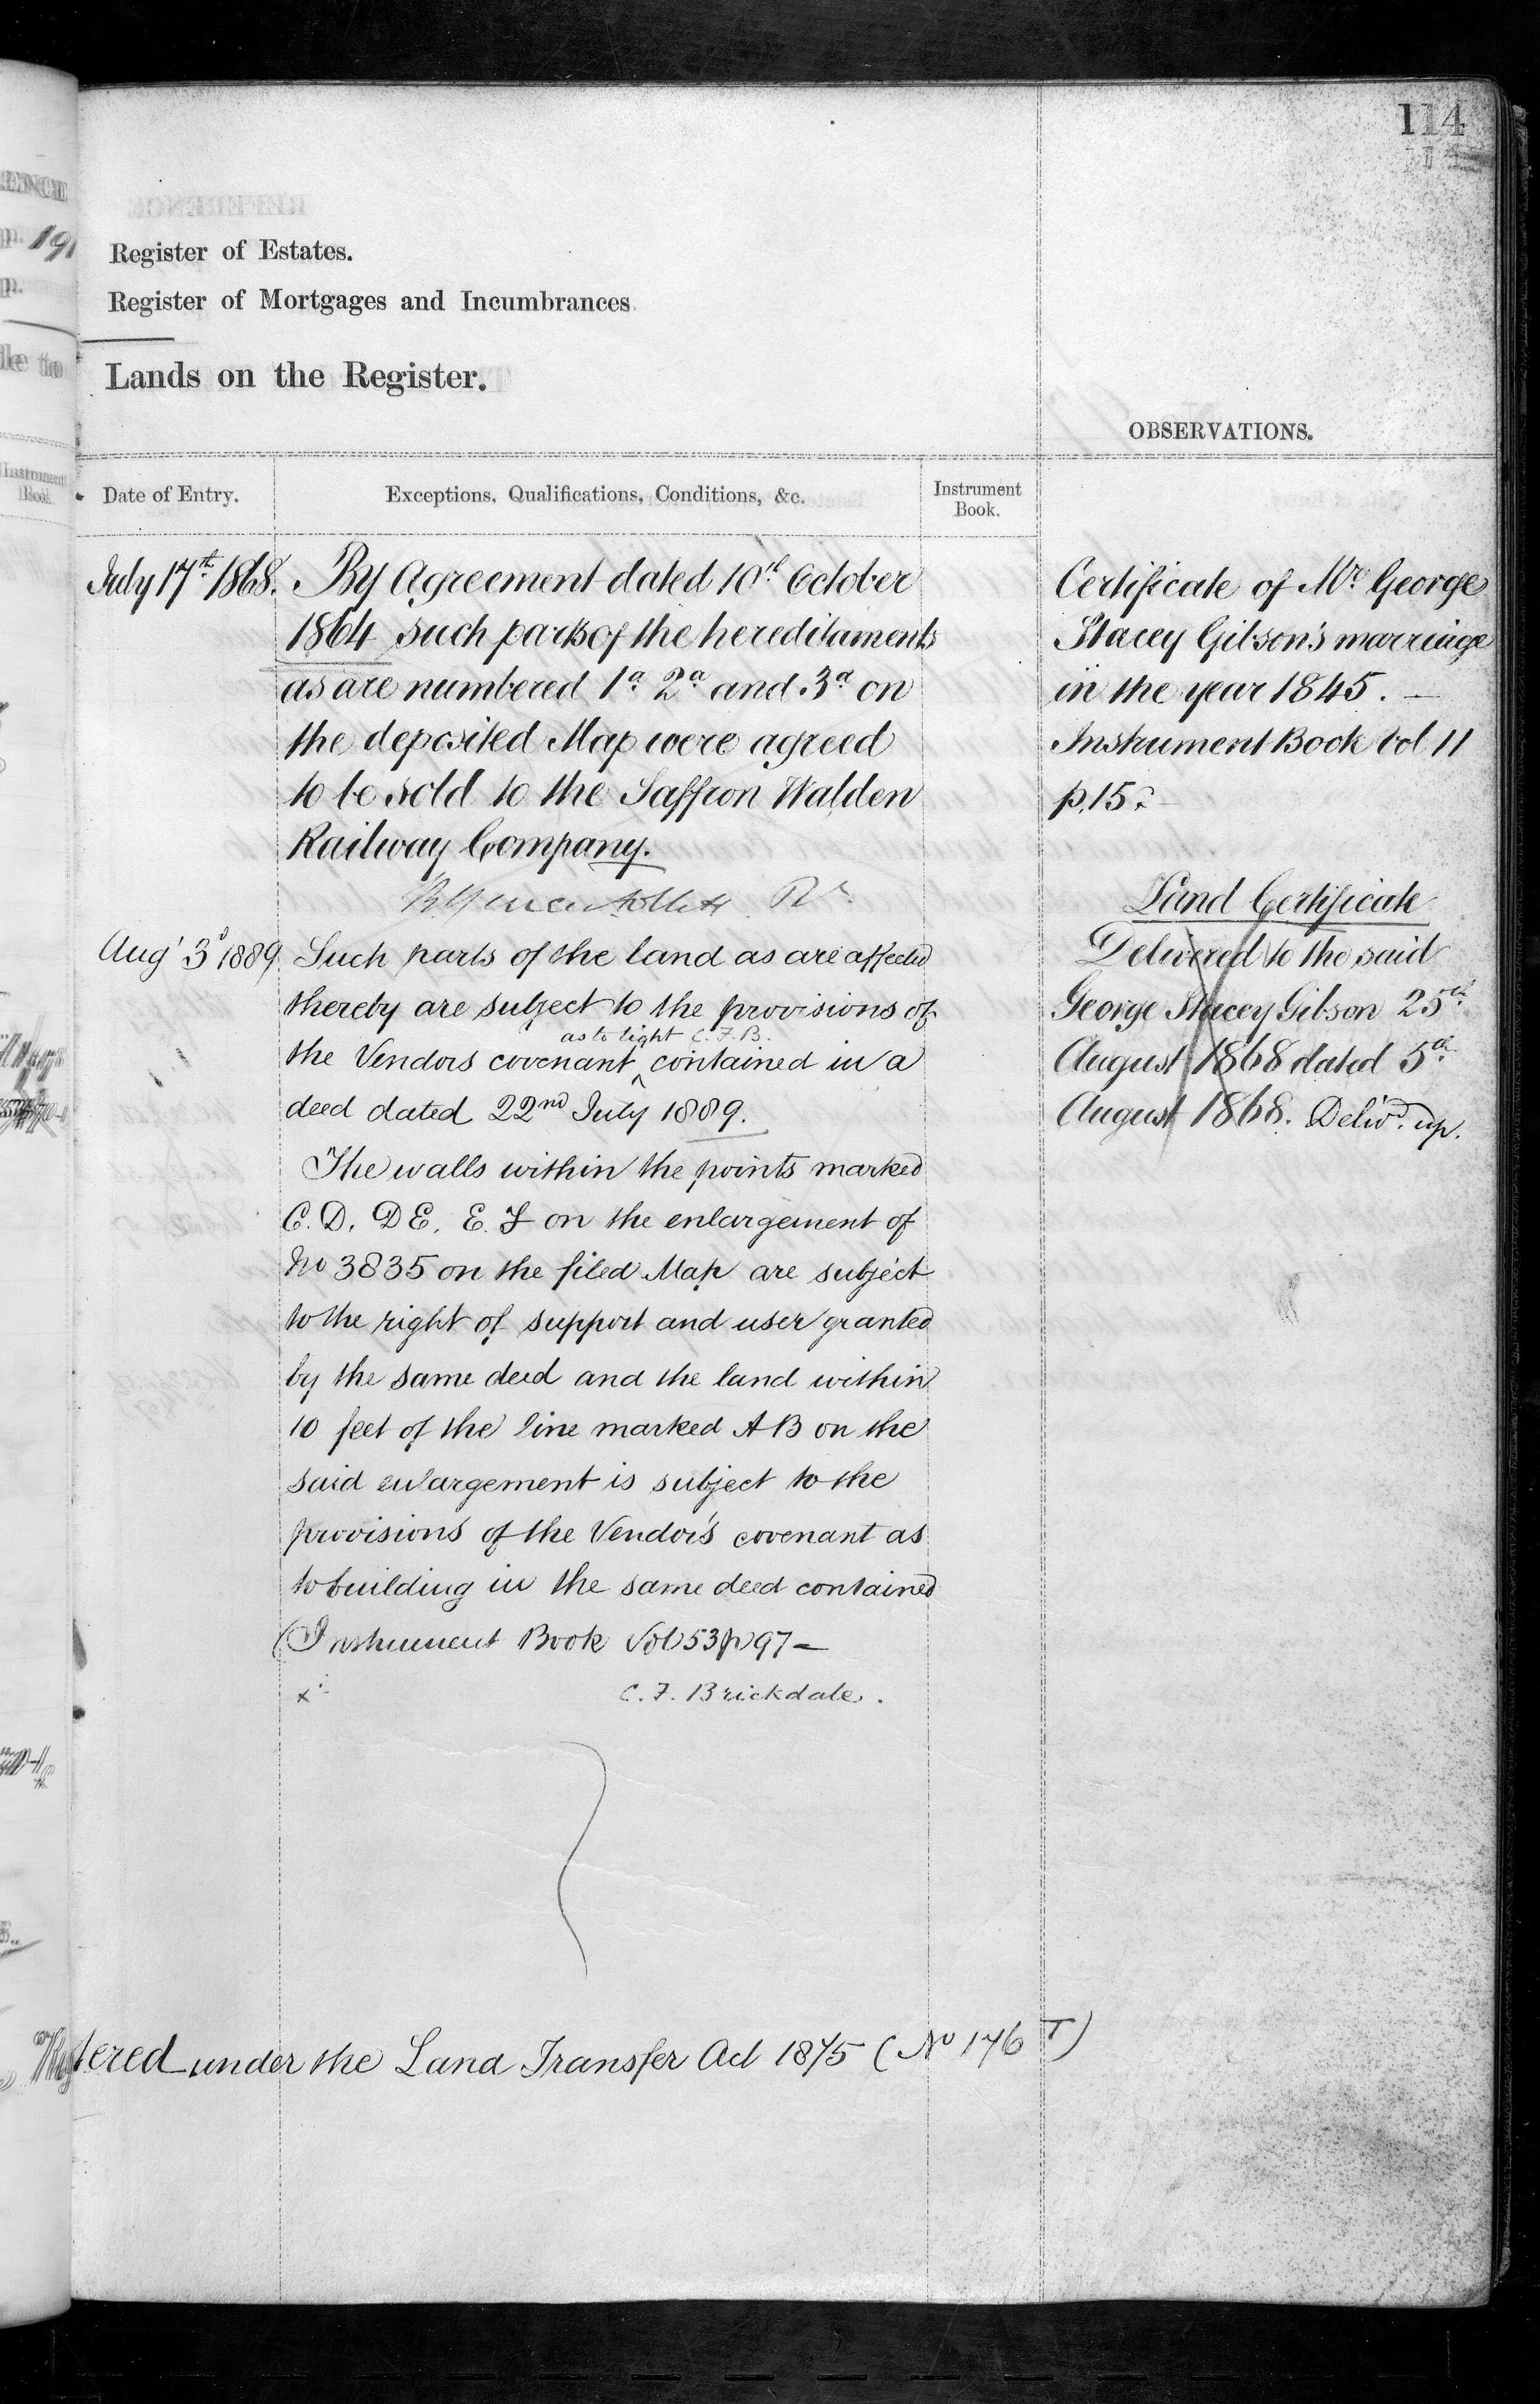 114
Register of Estates.
Register of Mortgages and Incumbrances.
Lands on the Register.
OBSERVATIONS.
Date of Entry.
Exceptions, Qualifications, Conditions, &c.
Instrument
Book.
July 17th 1868.
By Agreement dated 10th October
1864 such parts of the hereditaments
as are numbered 1a 2a and 3a on
the deposited Map were agreed
to be sold to the Saffron Walden
Railway Company.
Augt 3d 1889
Such parts of the land as are affected
thereby are subject to the provisions of
as to light C.F.B.
the Vendors covenant ^ contained in a
deed dated 22nd July 1889.
The walls within the points marked
C.D. DE. E.F on the enlargement of
No 3835 on the filed Map are subject
to the right of support and user granted
by the same deed and the land within
10 feet of the line marked AB on the
said enlargement is subject to the
provisions of the Vendor's covenant as
to building in the same deed contained
(Instrument Book Vol 53 p 97 —
x
C. F. Brickdale.
Certificate of Mr. George
Stacey Gibson's marriage
in the year 1845. —
Instrument Book Vol 11
p. 15.
Land Certificate
Delivered to the said
George Stacey Gibson 25th
August 1868 dated 5th
August 1868. Delivd. up.
tered under the Land Transfer Act 1875 (No 146 T)